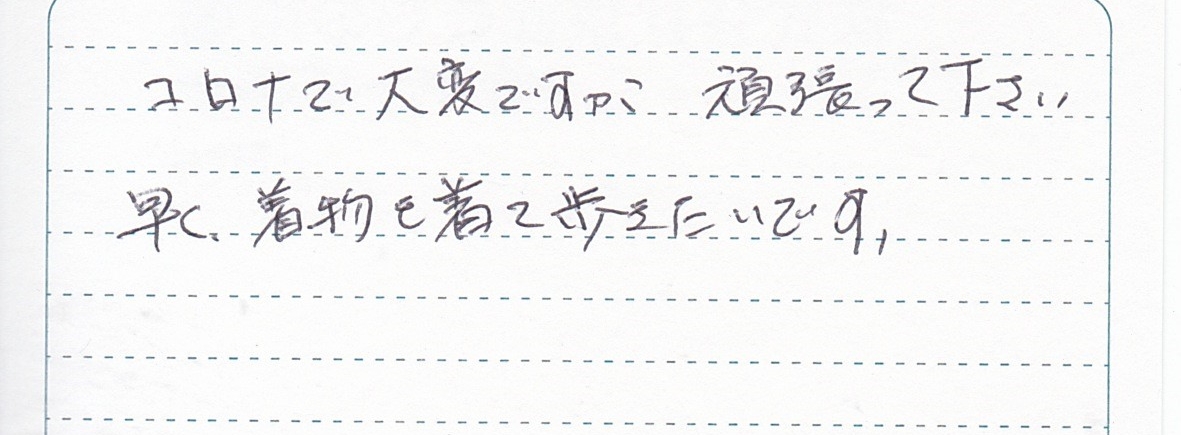 コロナで大変ですが 頑張って下さい
早く、着物を着て歩きたいです,